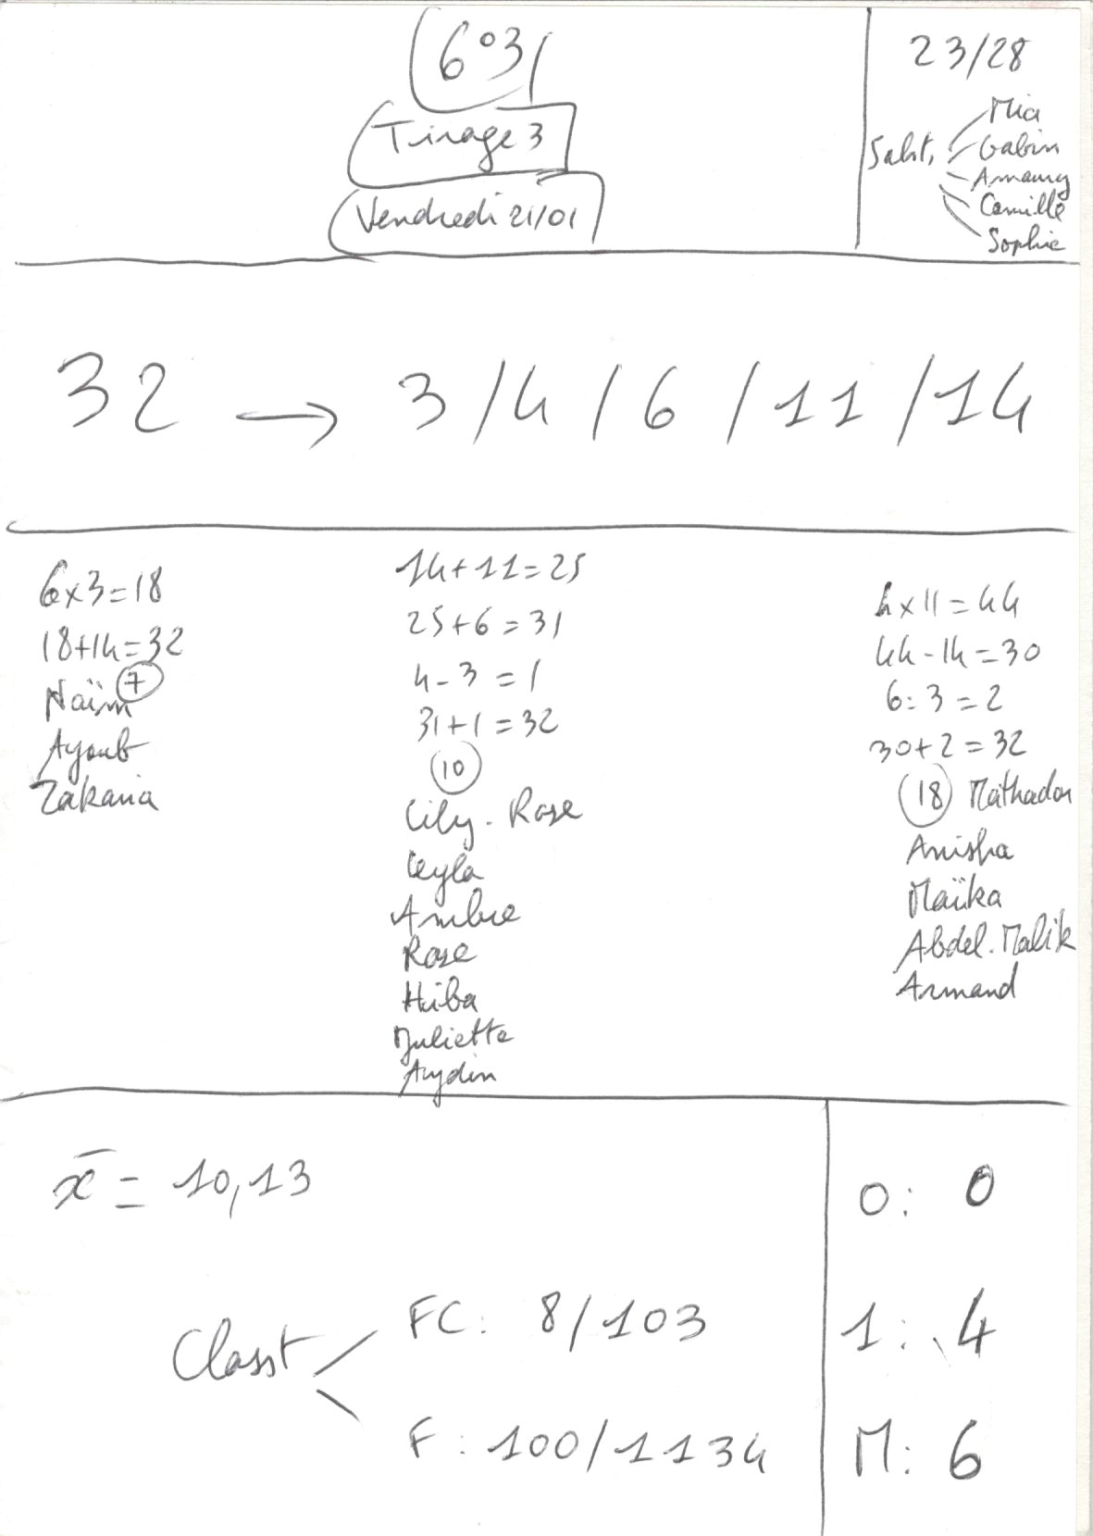 6°3
Tirage 3
Vendredi 21/01
23/28
Mia
Gabin
Amaury
Camille
Sophie
32 → 3/4/6/11/14
6x3=18
18+14=32
7
Naïm
Ayoub
Zakaria
14+11=25
25+6=31
4-3=1
31+1=32
10
Lily-Rose
Leyla
Ambre
Rose
Hiba
Juliette
Aydin
4x11=44
44-14=30
6:3=2
30+2=32
18
Anisha
Maïka
Abdel-Malik
Armand
x̄ = 10,13
Classt
FC: 8/103
F: 100/1134
0: 0
1: 4
M: 6